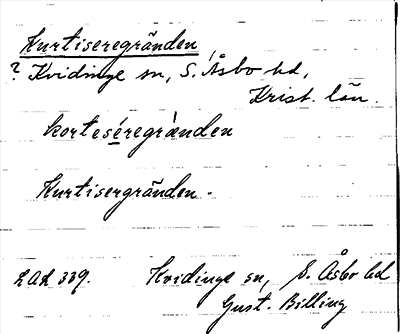 Kurtiseregränden
? Kvidinge sn, S. Åsbo hd,
Krist. län.
korteséregrànden
Kurtisergränden.
LAL 339. Kvidinge sn, S. Åsbo hd
Gust. Billing